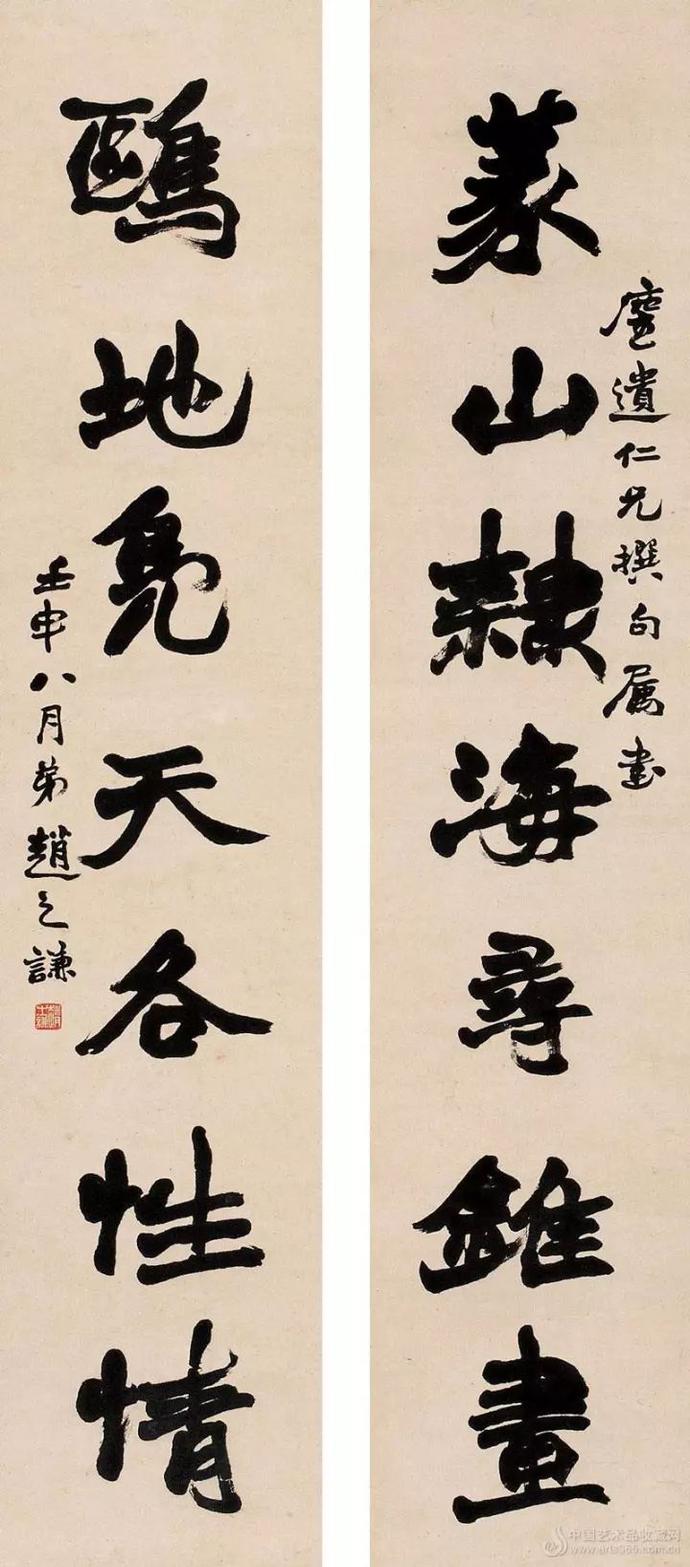 篆山隸海尋錐畫
遺仁兄撰句属書
鷗地鳧天各性情
壬申八月弟趙之謙
中国艺术品收藏网
www.arts365.com.cn